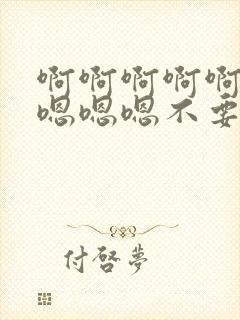 啊啊啊啊啊
嗯嗯嗯不要
付啓夢